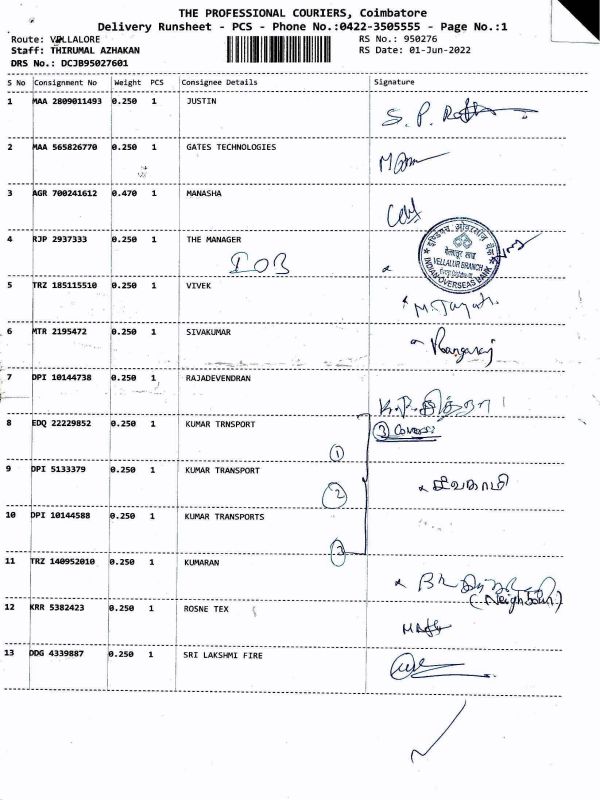 THE PROFESSIONAL COURIERS, Coimbatore
Delivery Runsheet - PCS - Phone No.:0422-3505555 - Page No.:1
Route: VELLALORE RS No.: 950276
Staff: THIRUMAL AZHAKAN RS Date: 01-Jun-2022
DRS No.: DCJB95027601
S No Consignment No Weight PCS Consignee Details Signature
1 MAA 2809011493 0.250 1 JUSTIN
2 MAA 565826770 0.250 1 GATES TECHNOLOGIES
3 AGR 700241612 0.470 1 MANASHA
4 RJP 2937333 0.250 1 THE MANAGER
IOB
VELLALUR BRANCH
INDIAN OVERSEAS BANK
5 TRZ 185115510 0.250 1 VIVEK
6 MTR 2195472 0.250 1 SIVAKUMAR
Rangaraj
7 DPI 10144738 0.250 1 RAJADEVENDRAN
8 EDQ 22229852 0.250 1 KUMAR TRNSPORT
1
3
9 DPI 5133379 0.250 1 KUMAR TRANSPORT
2
சிவகாமி
10 DPI 10144588 0.250 1 KUMAR TRANSPORTS
3
11 TRZ 140952010 0.250 1 KUMARAN
(Neighbour)
12 KRR 5382423 0.250 1 ROSNE TEX
13 DDG 4339887 0.250 1 SRI LAKSHMI FIRE